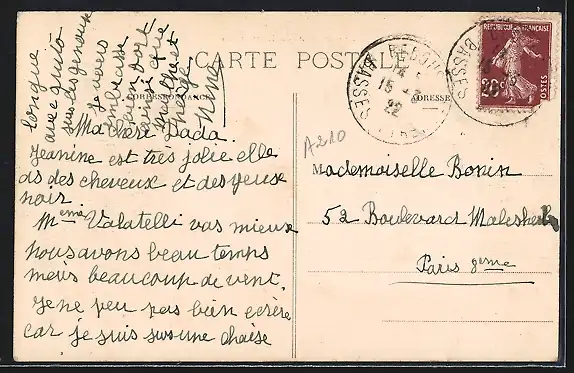 CARTE POSTALE
CORRESPONDANCE
ADRESSE
Ma chère Dada.
Jeanine est très jolie elle
as des cheveux et des yeux
noir
Mme Valatelli vas mieux
nous avons beau temps
mais beaucoup de vent.
Je ne peu pas bien ecrire
car je suis sous une chaise
longue
avec auto
sus des genoux
Je vous
embrasse
fort
ainsi que
et
Nine
A210
Mademoiselle Bonin
52 Boulevard Malesherb
Paris 8eme
REPUBLIQUE FRANÇAISE
POSTES
20c
BASSES
15
22
BASSES